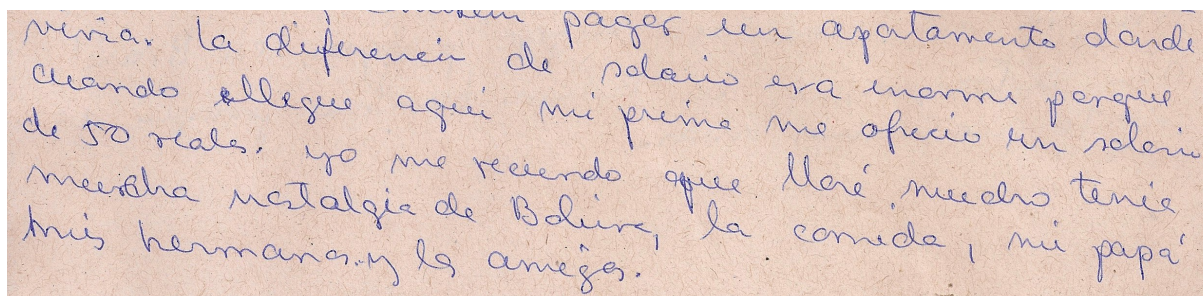 pagar un apartamento donde
vivia. la diferencia de salario era enorme porque
cuando llegue aqui mi prima me ofrecio un salario
de 50 reales. yo me recuerdo que lloré mucho tenia
mucha nostalgia de Bolivia, la comida, mi papá
mis hermanas y las amigas.